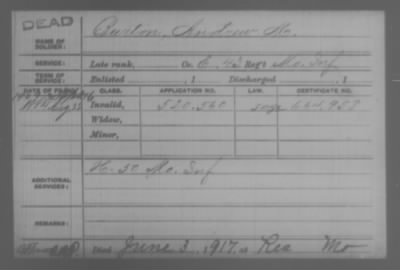 DEAD
NAME OF SOLDIER: Burton, Andrew M.
SERVICE: Late rank, Co. E, 43 Reg't Mo. Inf
TERM OF SERVICE: Enlisted , 1 Discharged , 1
DATE OF FILING. CLASS. APPLICATION NO. LAW. CERTIFICATE NO.
Invalid, 520,560
Widow,
Minor,
ADDITIONAL SERVICES: H. 50 Mo. Inf
REMARKS:
Died June 3, 1917, at Rea Mo